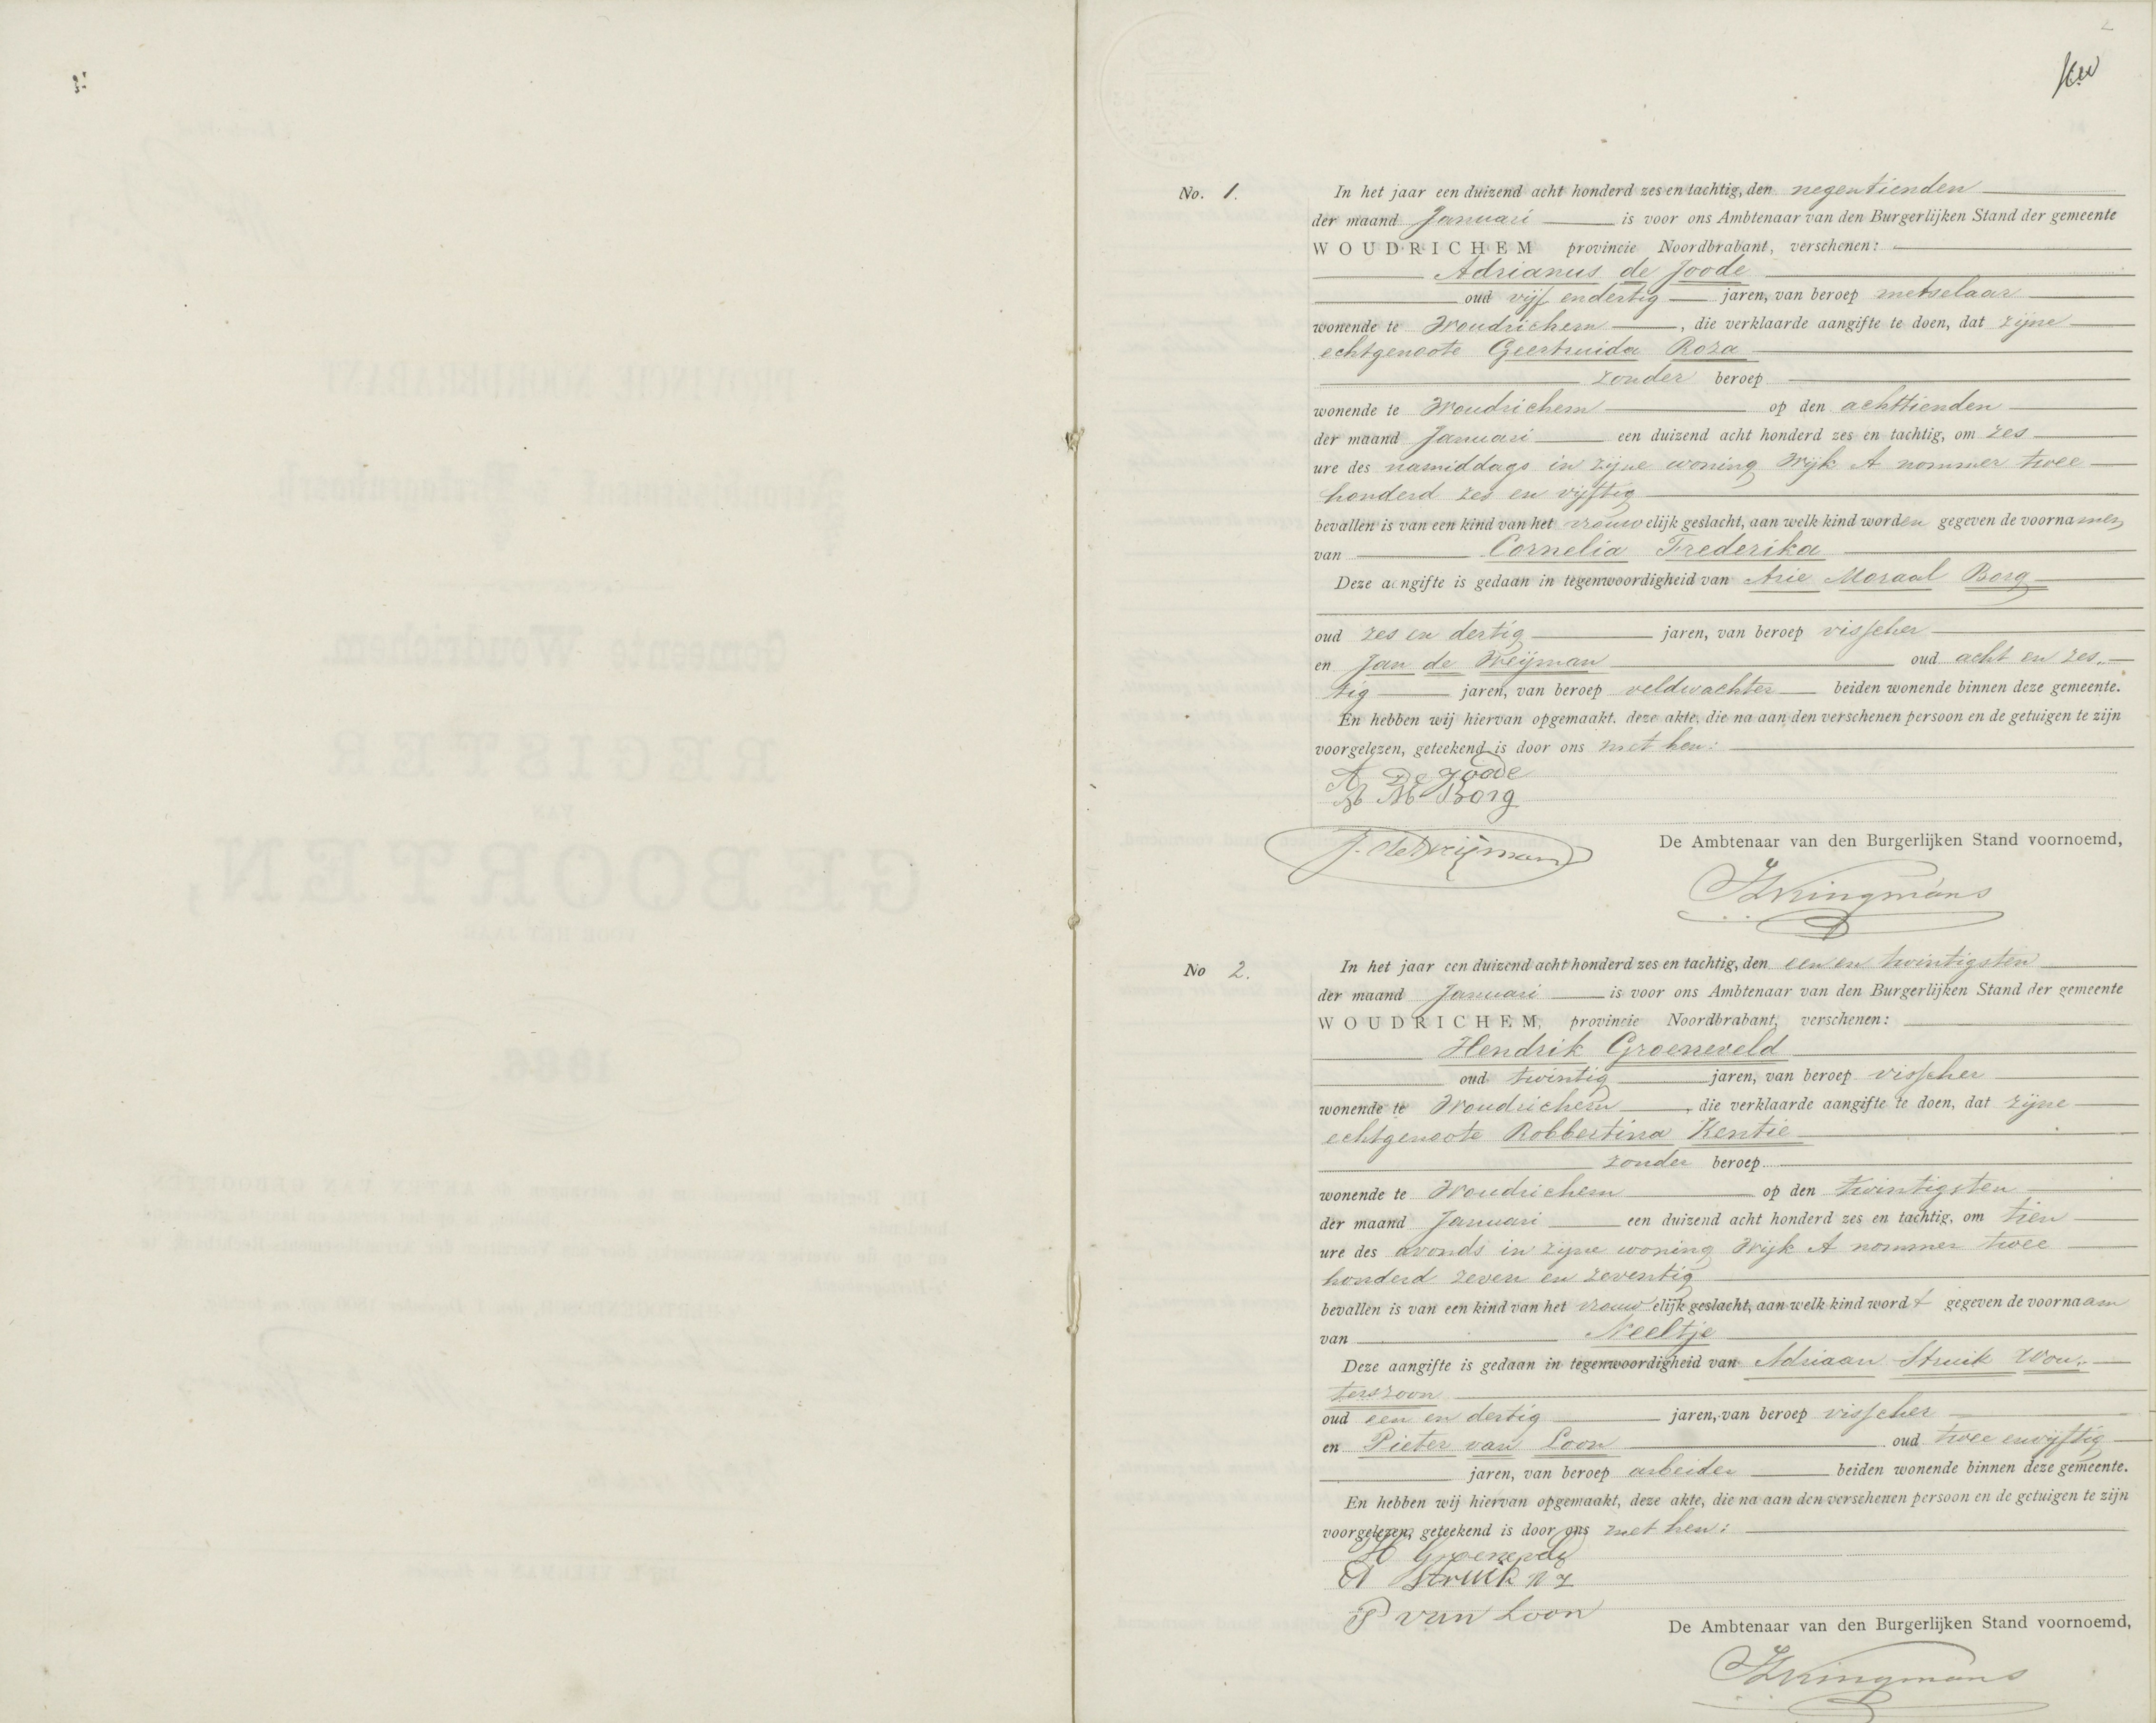 No. 1.
In het jaar een duizend acht honderd zes en tachtig, den negentienden
der maand Januari is voor ons Ambtenaar van den Burgerlijken Stand der gemeente
WOUDRICHEM provincie Noordbrabant, verschenen:
Adrianus de Joode
oud vijf en dertig jaren, van beroep metselaar
wonende te Woudrichem, die verklaarde aangifte te doen, dat zijne
echtgenoote Geertruida Roza
zonder beroep
wonende te Woudrichem op den achttienden
der maand Januari een duizend acht honderd zes en tachtig, om zes
ure des namiddags in zijne woning Wijk A nommer twee
honderd zes en vijftig
bevallen is van een kind van het vrouwelijk geslacht, aan welk kind worden gegeven de voornamen
van Cornelia Frederika
Deze aangifte is gedaan in tegenwoordigheid van Arie Moraal Borg
oud zes en dertig jaren, van beroep visscher
en Jan de Weijman oud acht en zes„
tig jaren, van beroep veldwachter beiden wonende binnen deze gemeente.
En hebben wij hiervan opgemaakt, deze akte, die na aan den verschenen persoon en de getuigen te zijn
voorgelezen, geteekend is door ons met hen:
A De Joode
A M Borg
De Ambtenaar van den Burgerlijken Stand voornoemd,
No 2.
In het jaar een duizend acht honderd zes en tachtig, den een en twintigsten
der maand Januari is voor ons Ambtenaar van den Burgerlijken Stand der gemeente
WOUDRICHEM, provincie Noordbrabant, verschenen:
Hendrik Groeneveld
oud twintig jaren, van beroep visscher
wonende te Woudrichem, die verklaarde aangifte te doen, dat zijne
echtgenoote Robbertina Kentie
zonder beroep
wonende te Woudrichem op den twintigsten
der maand Januari een duizend acht honderd zes en tachtig, om tien
ure des avonds in zijne woning Wijk A nommer twee
honderd zeven en zeventig
bevallen is van een kind van het vrouwelijk geslacht, aan welk kind wordt gegeven de voornaam
van Neeltje
Deze aangifte is gedaan in tegenwoordigheid van Adriaan Struik Wou„
terszoon
oud een en dertig jaren, van beroep visscher
en Pieter van Loon oud twee en vijftig
jaren, van beroep arbeider beiden wonende binnen deze gemeente.
En hebben wij hiervan opgemaakt, deze akte, die na aan den verschenen persoon en de getuigen te zijn
voorgelezen, geteekend is door ons met hen:
H Groeneveld
A Struik Wz
P van Loon
De Ambtenaar van den Burgerlijken Stand voornoemd,